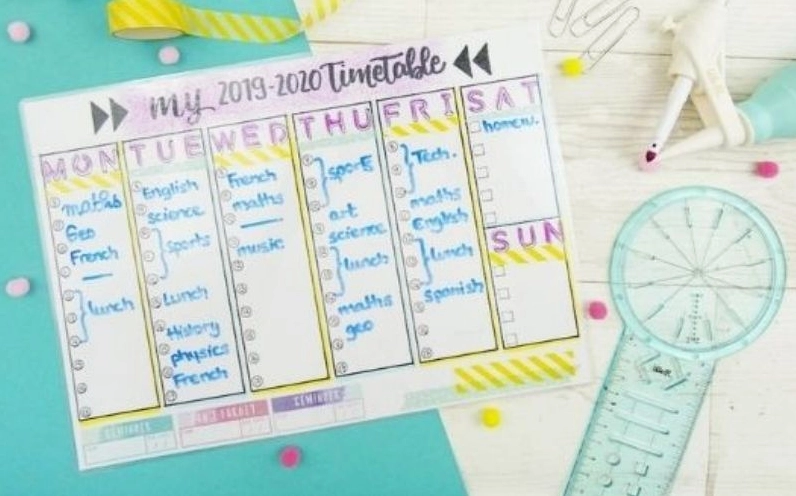 my 2019-2020 Timetable
MON
maths
Geo
French
lunch
TUE
English
science
sports
Lunch
History
physics
French
WED
French
maths
music
THU
sports
art
science
lunch
maths
geo
FRI
Tech.
maths
English
lunch
spanish
SAT
homew.
SUN
REMINDER
REMINDER